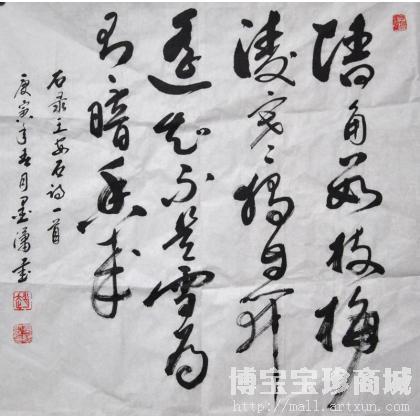 墙角数枝梅
凌寒独自开
遥知不是雪为
有暗香来
右录王安石诗一首
庚寅年春月墨书
博宝宝珍商城
http://mall.artxun.com